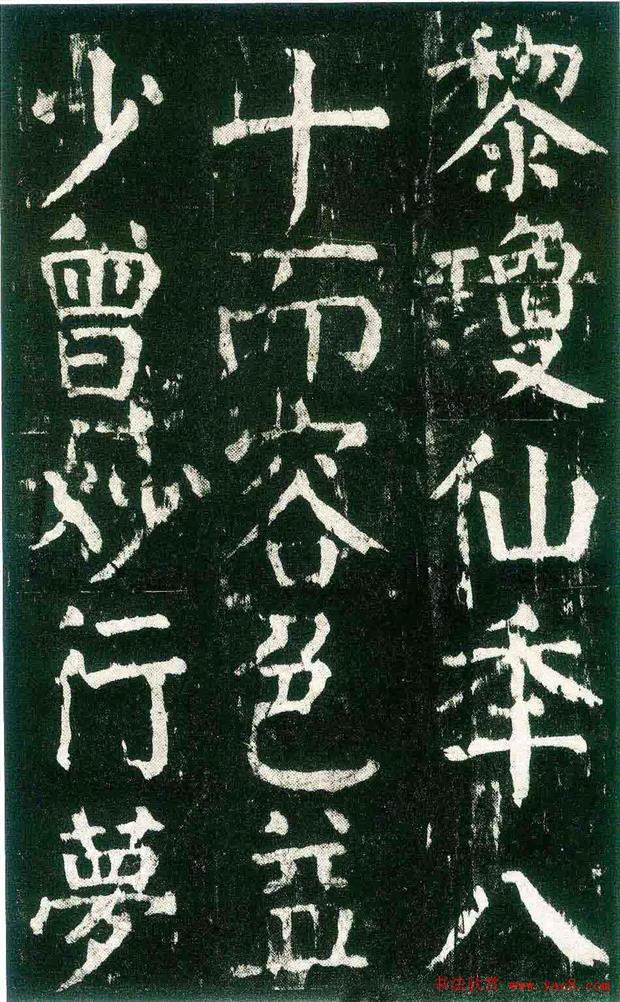 黎瓊仙年八
十而容色益
少曾妙行夢
书法欣赏 www.yac8.com